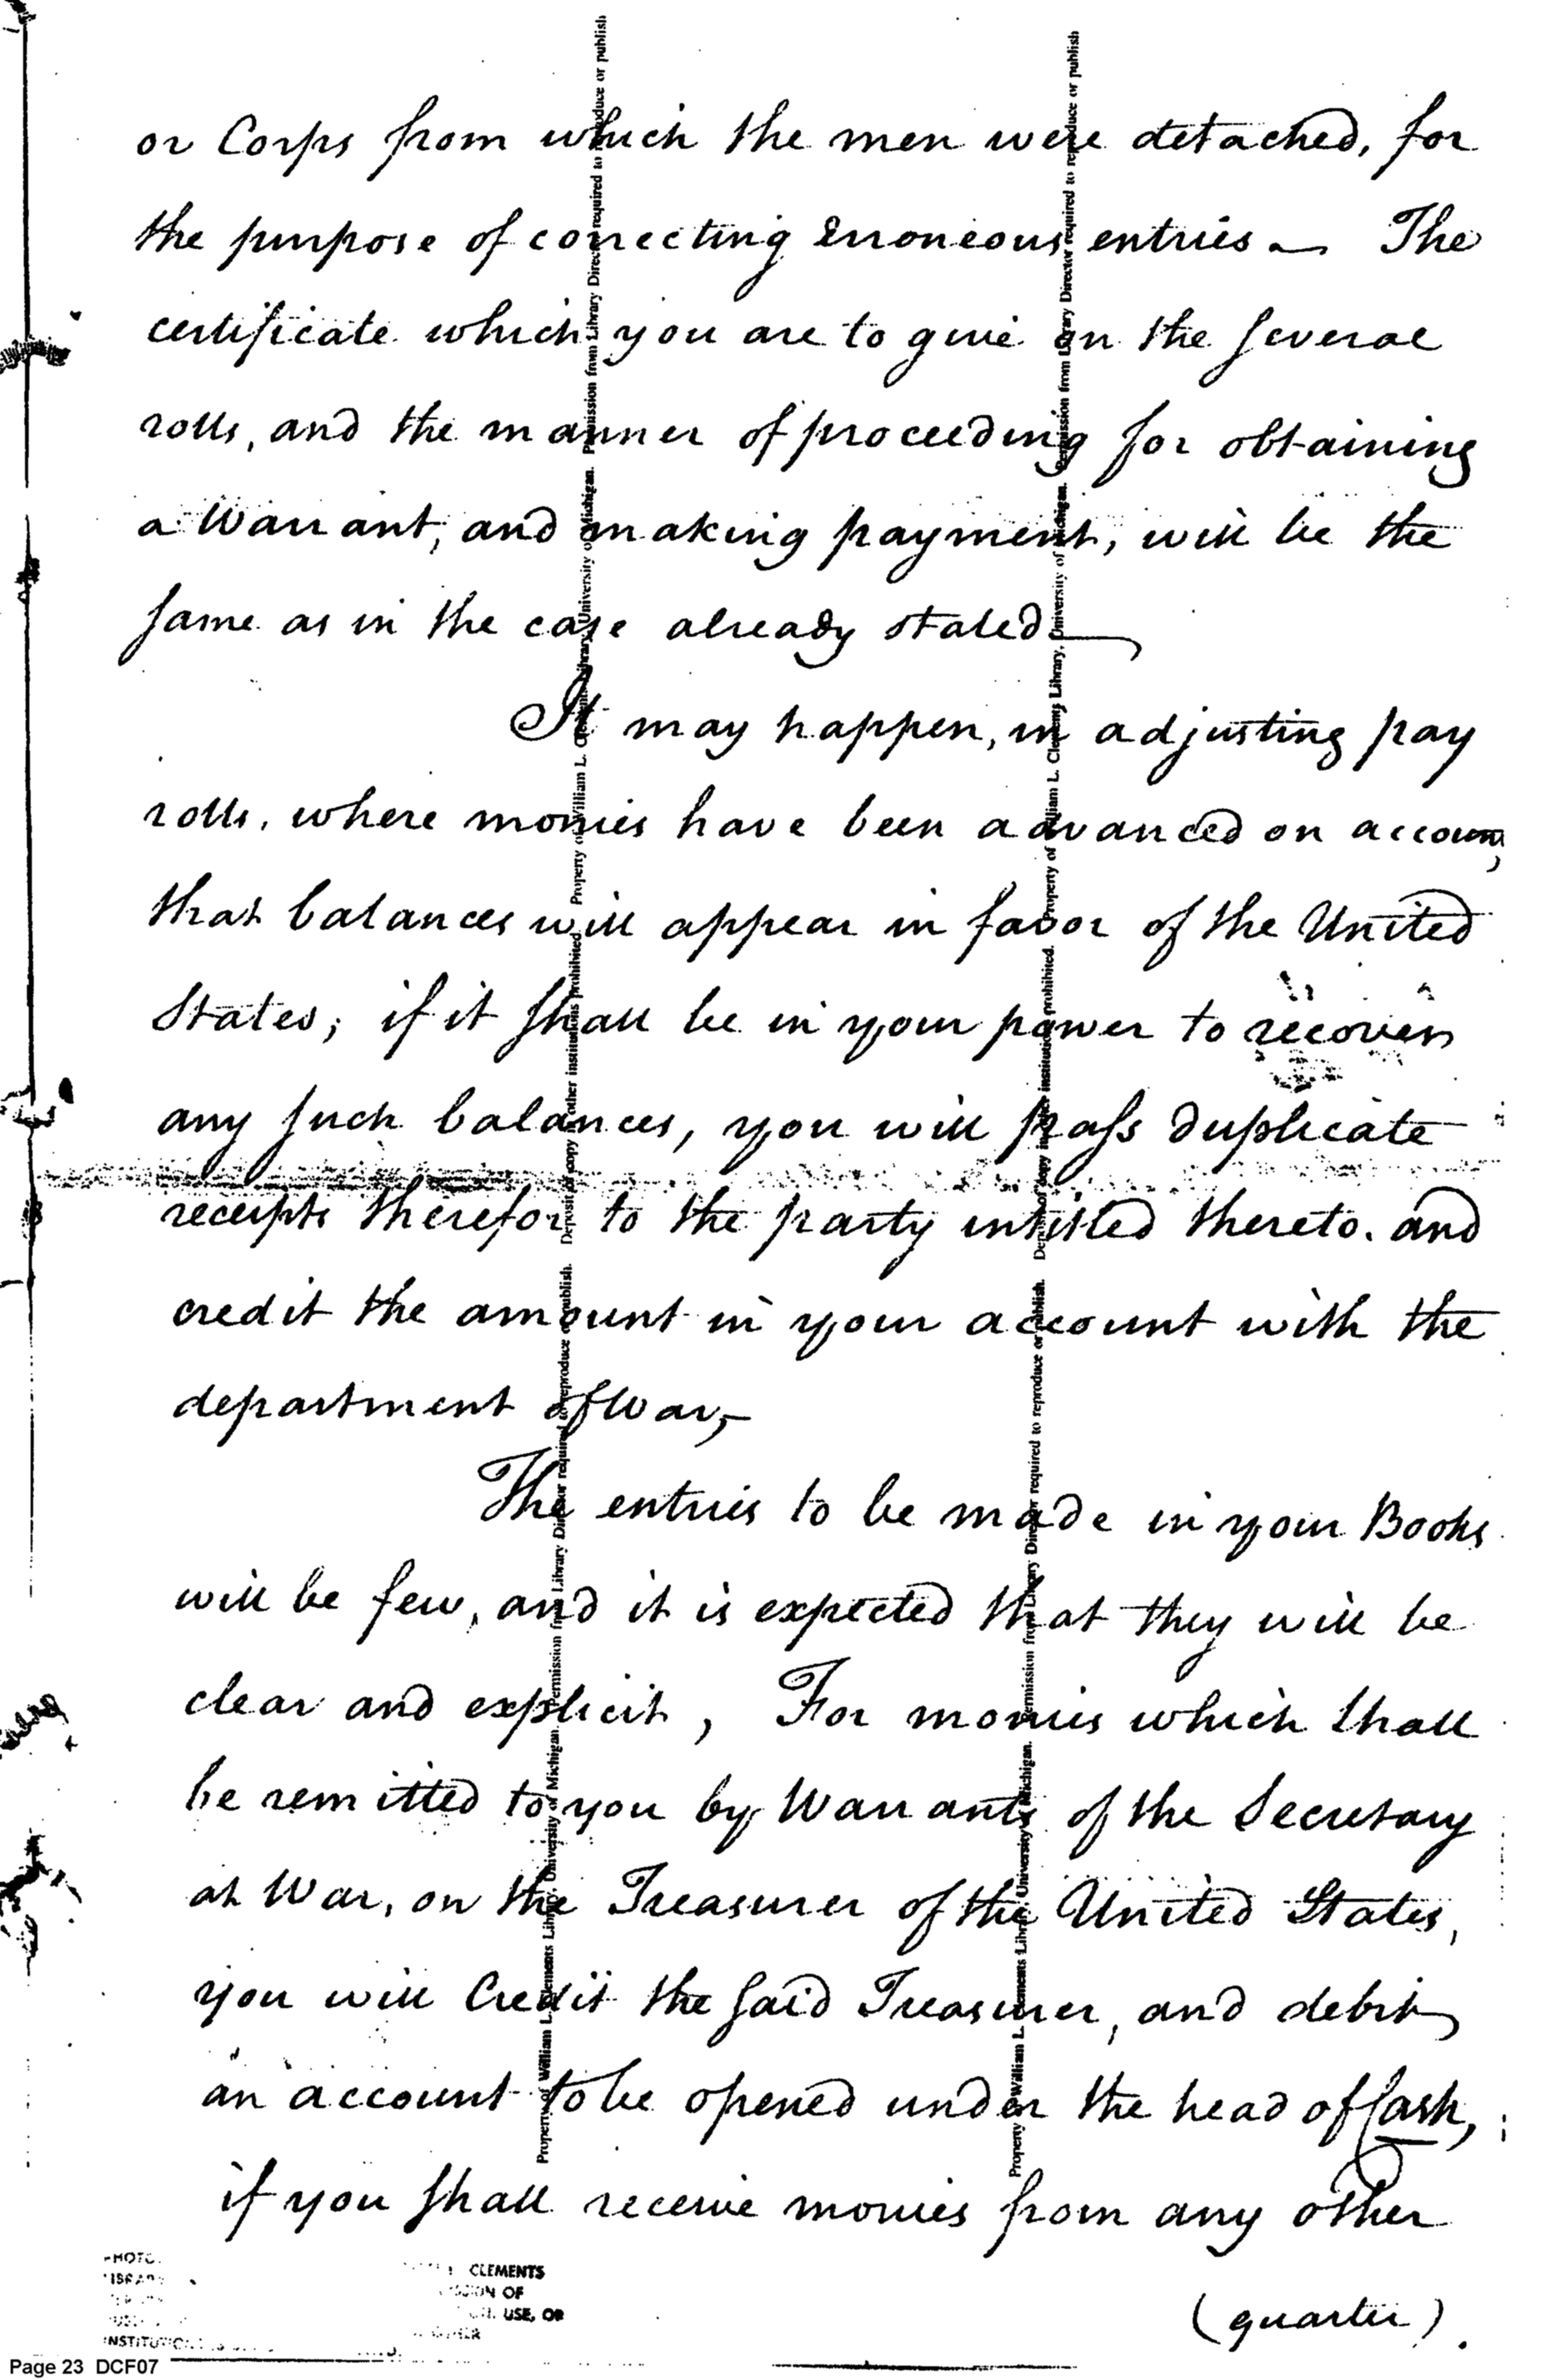 or Corps from which the men were detached, for
the purpose of correcting Erroneous entries — The
certificate which you are to give on the several
rolls, and the manner of proceeding for obtaining
a Warrant, and making payment, will be the
same as in the case already stated —
It may happen, in adjusting pay
rolls, where monies have been advanced on account,
that balances will appear in favor of the United
States; if it shall be in your power to recover
any such balances, you will pass duplicate
receipts therefor to the party intitled thereto. and
credit the amount in your account with the
department of War,—
The entries to be made in your Books
will be few, and it is expected that they will be
clear and explicit, For monies which shall
be remitted to you by Warrants of the Secretary
at War, on the Treasurer of the United States,
you will Credit the said Treasurer, and debit
an account to be opened under the head of Cash,
if you shall receive monies from any other
(quarter).
Property of William L. Clements Library, University of Michigan. Permission from Library Director required to reproduce or publish. Deposit of copy in other institutions prohibited. Property of William L. Clements Library, University of Michigan. Permission from Library Director required to reproduce or publish
Property of William L. Clements Library, University of Michigan. Permission from Library Director required to reproduce or publish. Deposit of copy in other institutions prohibited. Property of William L. Clements Library, University of Michigan. Permission from Library Director required to reproduce or publish
CLEMENTS
OF
USE, OR
Page 23 DCF07